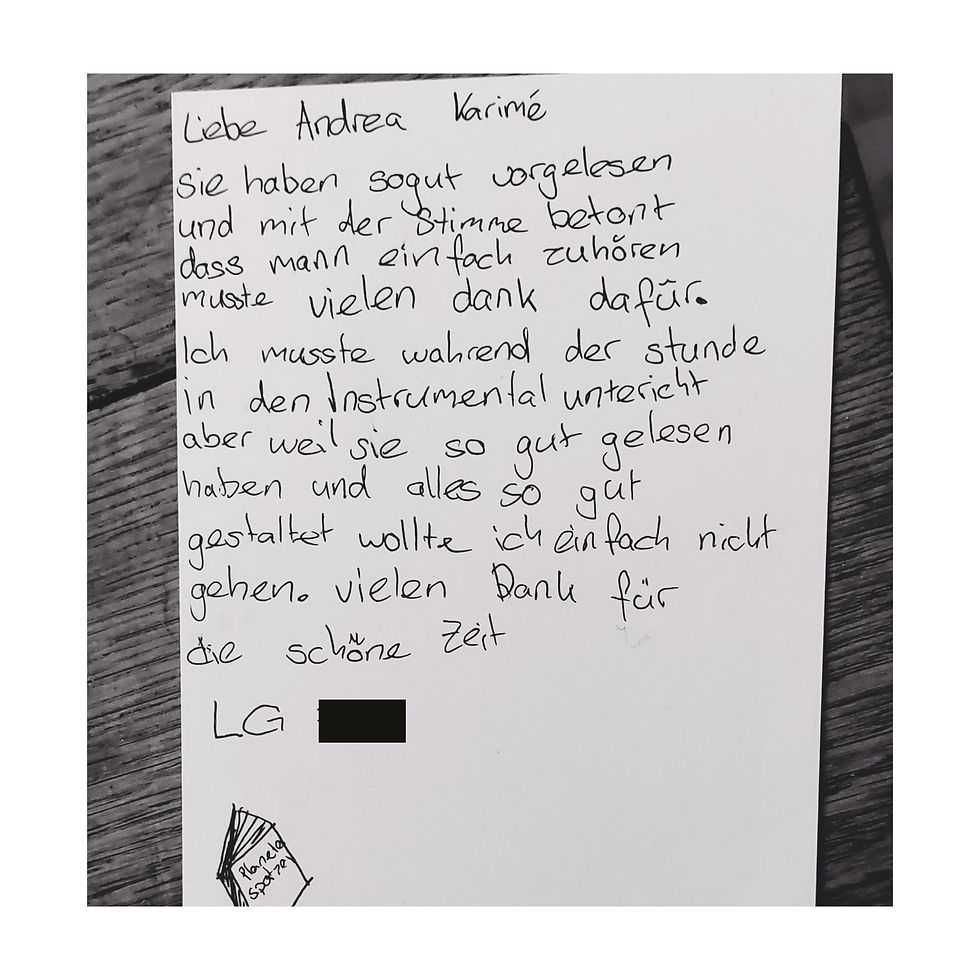 Liebe Andrea Karimé
Sie haben sogut vorgelesen
und mit der Stimme betont
dass mann einfach zuhören
musste vielen dank dafür.
Ich musste wahrend der stunde
in den Instrumental untericht
aber weil sie so gut gelesen
haben und alles so gut
gestaltet wollte ich einfach nicht
gehen. vielen Dank für
die schöne Zeit
LG
Planeten
spatzen